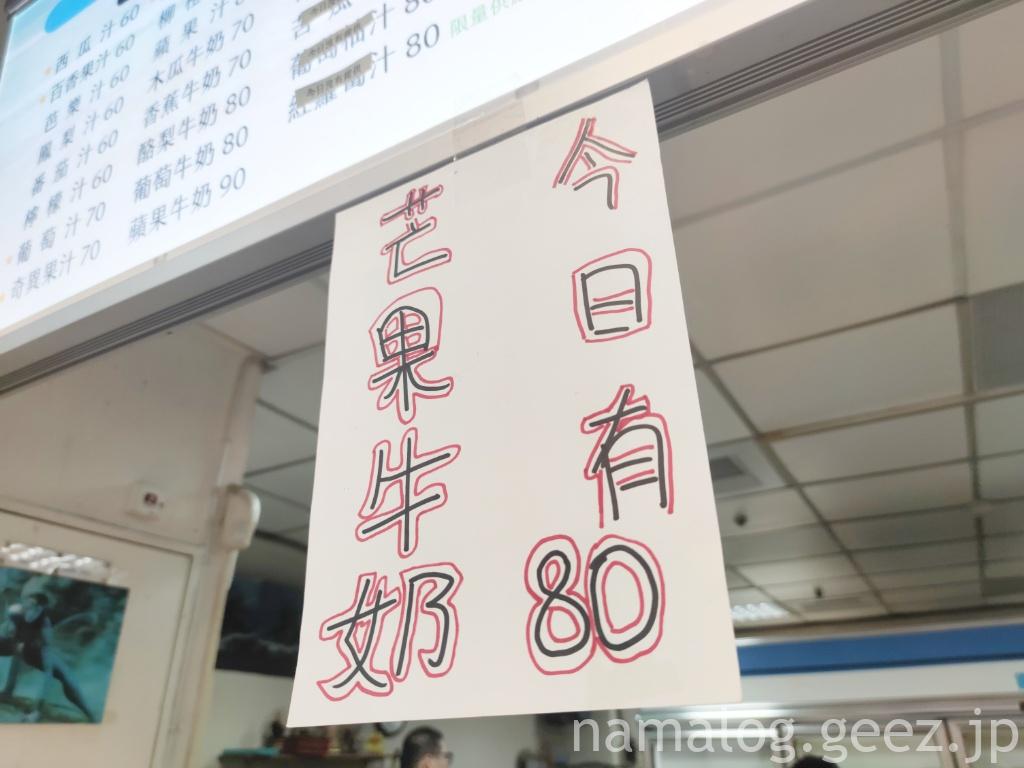 西瓜汁60
百香果汁60
芭樂汁60
鳳梨汁60
番茄汁60
檸檬汁60
葡萄汁70
奇異果汁70
蘋果汁80
木瓜牛奶70
香蕉牛奶70
酪梨牛奶80
葡萄牛奶80
蘋果牛奶90
汁80
今日有
80
芒果牛奶
namalog.geez.jp